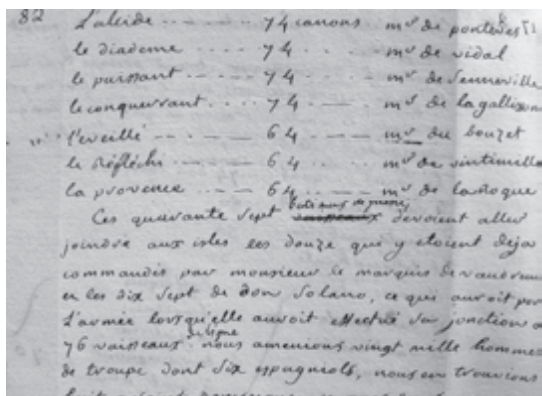 82 L'alcide 74 canons mr de pontevès
le diademe 74 mr de vidal
le puissant 74 mr de Senneville
le conquerrant 74 mr de la gallisonn
l'eveillé 64 mr du bouzet
le Réfléchi 64 mr de vintimille
la provence 64 mr de laRoque
Ces quarante sept batimens de guerre devoient aller
joindre aux isles les douze qui y etoient deja
commandés par monsieur le marquis de vaudreui
et les dix sept de don Solano, ce qui auroit por
L'armée lorsqu'elle auroit effectué sa jonction a
76 vaisseaux de ligne nous amenions vingt mille hommes
de troupe dont dix espagniols, nous en trouvions